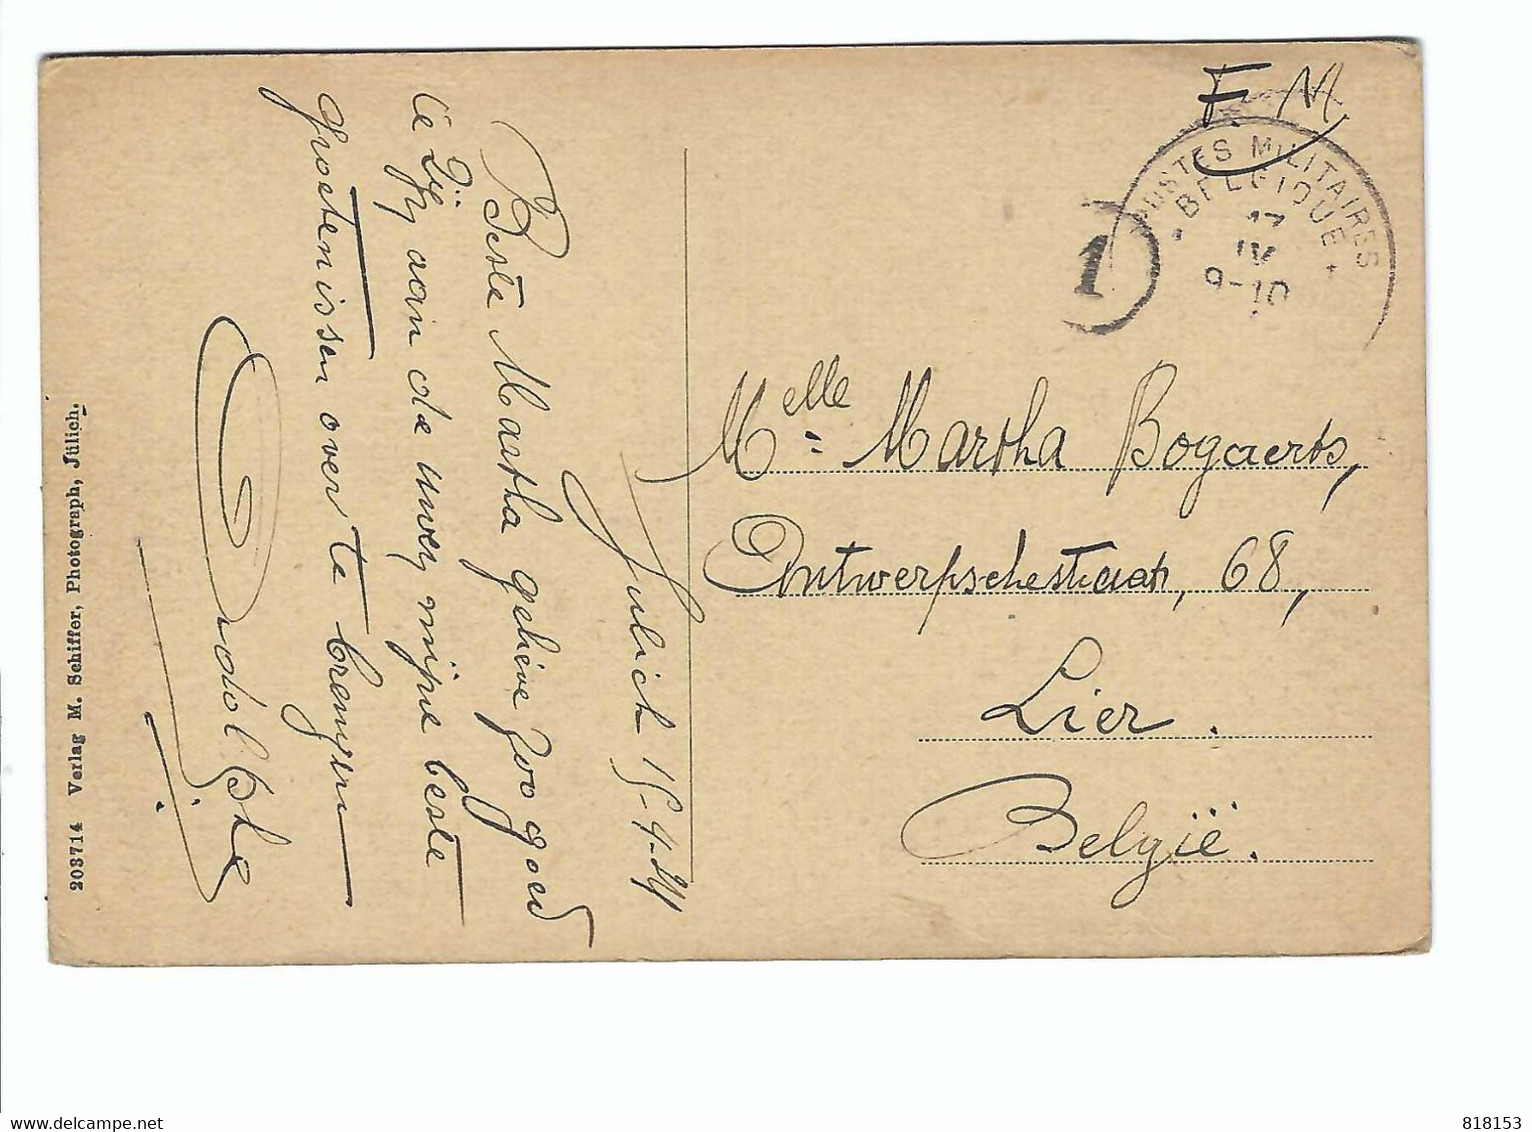 F. M.
POSTES MILITAIRES
BELGIQUE
17
IV
9-10
1
Melle Martha Bogaerts,
Antwerpschestraat, 68,
Lier.
België.
Julich 15-4-24
Beste Martha gelieve zoo goed
te zijn aan de uwen mijne beste
groetenissen over te brengen
203714 Verlag M. Schiffer, Photograph, Jülich.
delcampe.net
818153